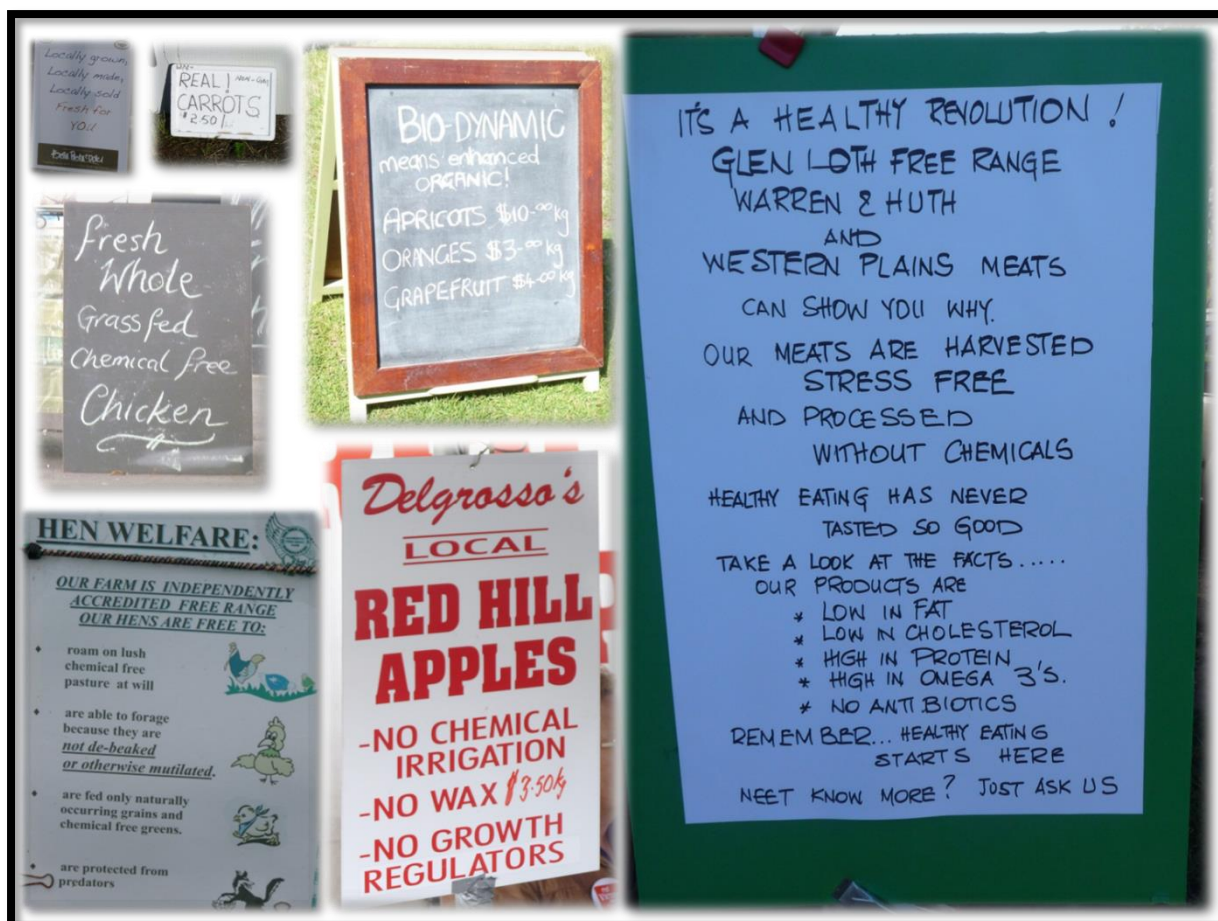 Locally grown,
Locally made,
Locally sold
Fresh for
YOU
REAL!
CARROTS
$2.50/
BIO-DYNAMIC
means enhanced
ORGANIC!
APRICOTS $10-00 kg
ORANGES $3-00 kg
GRAPEFRUIT $4-00 kg
fresh
Whole
Grassfed
Chemical free
Chicken
HEN WELFARE:
OUR FARM IS INDEPENDENTLY
ACCREDITED FREE RANGE
OUR HENS ARE FREE TO:
roam on lush
chemical free
pasture at will
are able to forage
because they are
not de-beaked
or otherwise mutilated.
are fed only naturally
occurring grains and
chemical free greens.
are protected from
predators
Delgrosso's
LOCAL
RED HILL
APPLES
-NO CHEMICAL
IRRIGATION
-NO WAX $3.50kg
-NO GROWTH
REGULATORS
IT'S A HEALTHY REVOLUTION !
GLEN LOTH FREE RANGE
WARREN & HUTH
AND
WESTERN PLAINS MEATS
CAN SHOW YOU WHY.
OUR MEATS ARE HARVESTED
STRESS FREE
AND PROCESSED
WITHOUT CHEMICALS
HEALTHY EATING HAS NEVER
TASTED SO GOOD
TAKE A LOOK AT THE FACTS.....
OUR PRODUCTS ARE
* LOW IN FAT
* LOW IN CHOLESTEROL
* HIGH IN PROTEIN
* HIGH IN OMEGA 3'S.
* NO ANTIBIOTICS
REMEMBER... HEALTHY EATING
STARTS HERE
NEET KNOW MORE? JUST ASK US